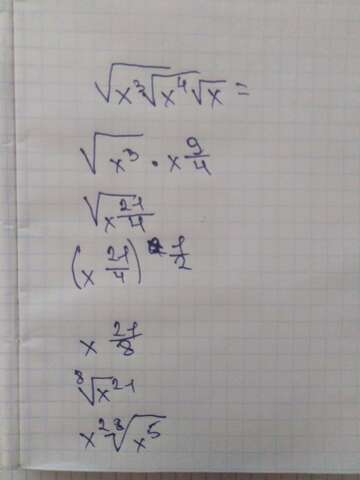 √(x³√(x⁴√x)) =
√(x³ · x^(9/4))
√(x^(21/4))
(x^(21/4))^(1/2)
x^(21/8)
⁸√(x²¹)
x² ⁸√(x⁵)